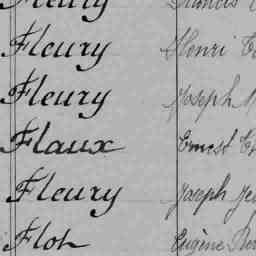 Fleury
Fleury Henri
Fleury Joseph
Flaux Ernest
Fleury Joseph
Floh Eugène